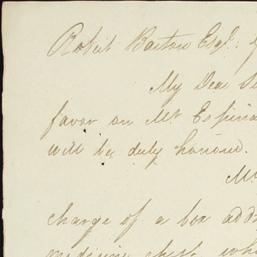 Robert Barton Esqr.
My Dear
favor on Mr. Espina
will be duly honored.
charge of a box add
medicine chest, wh